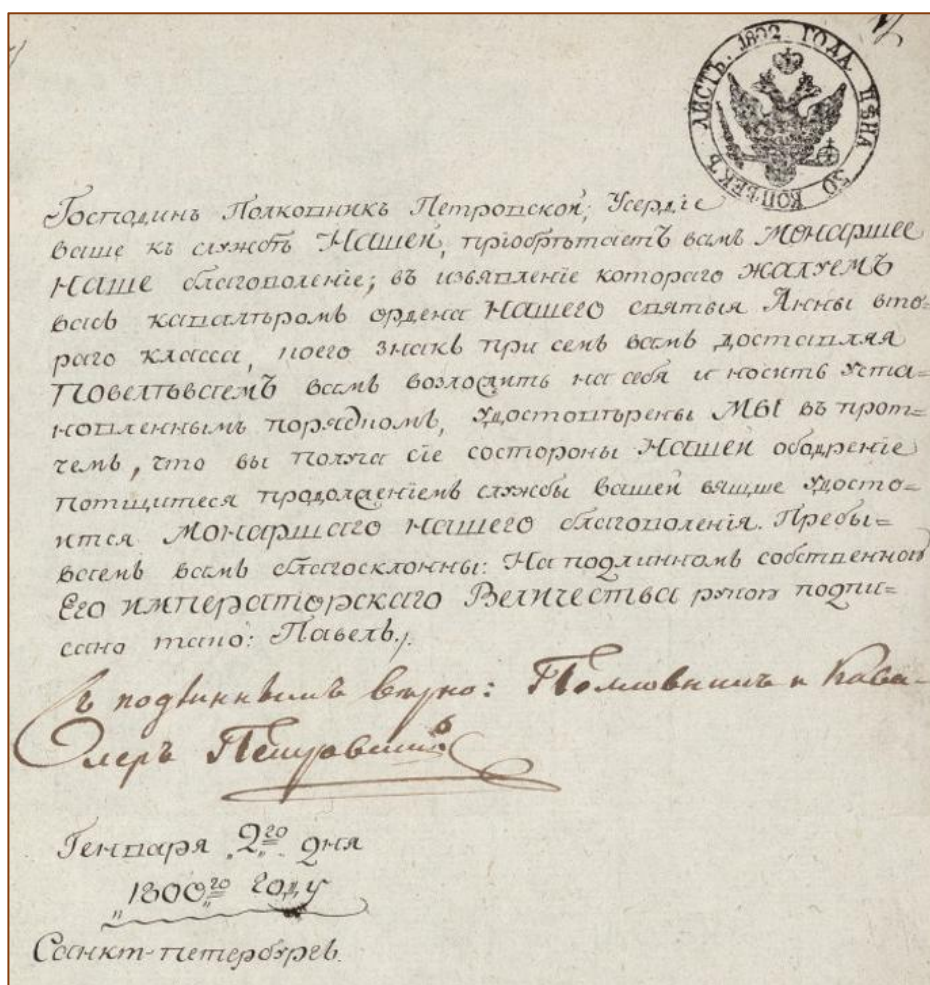 ЛИСТЪ. 1802 ГОДА. ЦѢНА 30 КОПѢЕКЪ
Господинъ Полковникъ Петровской, Усердіе
ваше къ службѣ Нашей, пріобрѣтаетъ вамъ Монаршее
Наше благоволеніе; въ изъявленіе котораго Жалуемъ
васъ кавалѣромъ ордена Нашего святыя Анны вто=
раго класса, коего знакъ при семъ вамъ доставляя
Повелѣваемъ вамъ возложить на себя и носить уста=
новленнымъ порядкомъ, удостовѣрены Мы въ прот=
чемъ, что вы получа сіе состороны Нашей ободреніе
потщитеся продолженіемъ службы вашей вящше удосто=
ится Монаршаго Нашего благоволенія. Пребы=
ваемъ вамъ благосклонны: На подлинномъ собственною
Его императорскаго Величества рукою подпи=
сано тако: Павелъ.
Съ подлиннымъ вѣрно: Полковникъ и Кава-
леръ Петровский
Генваря 2го дня
1800го году
Санкт-петербургъ.